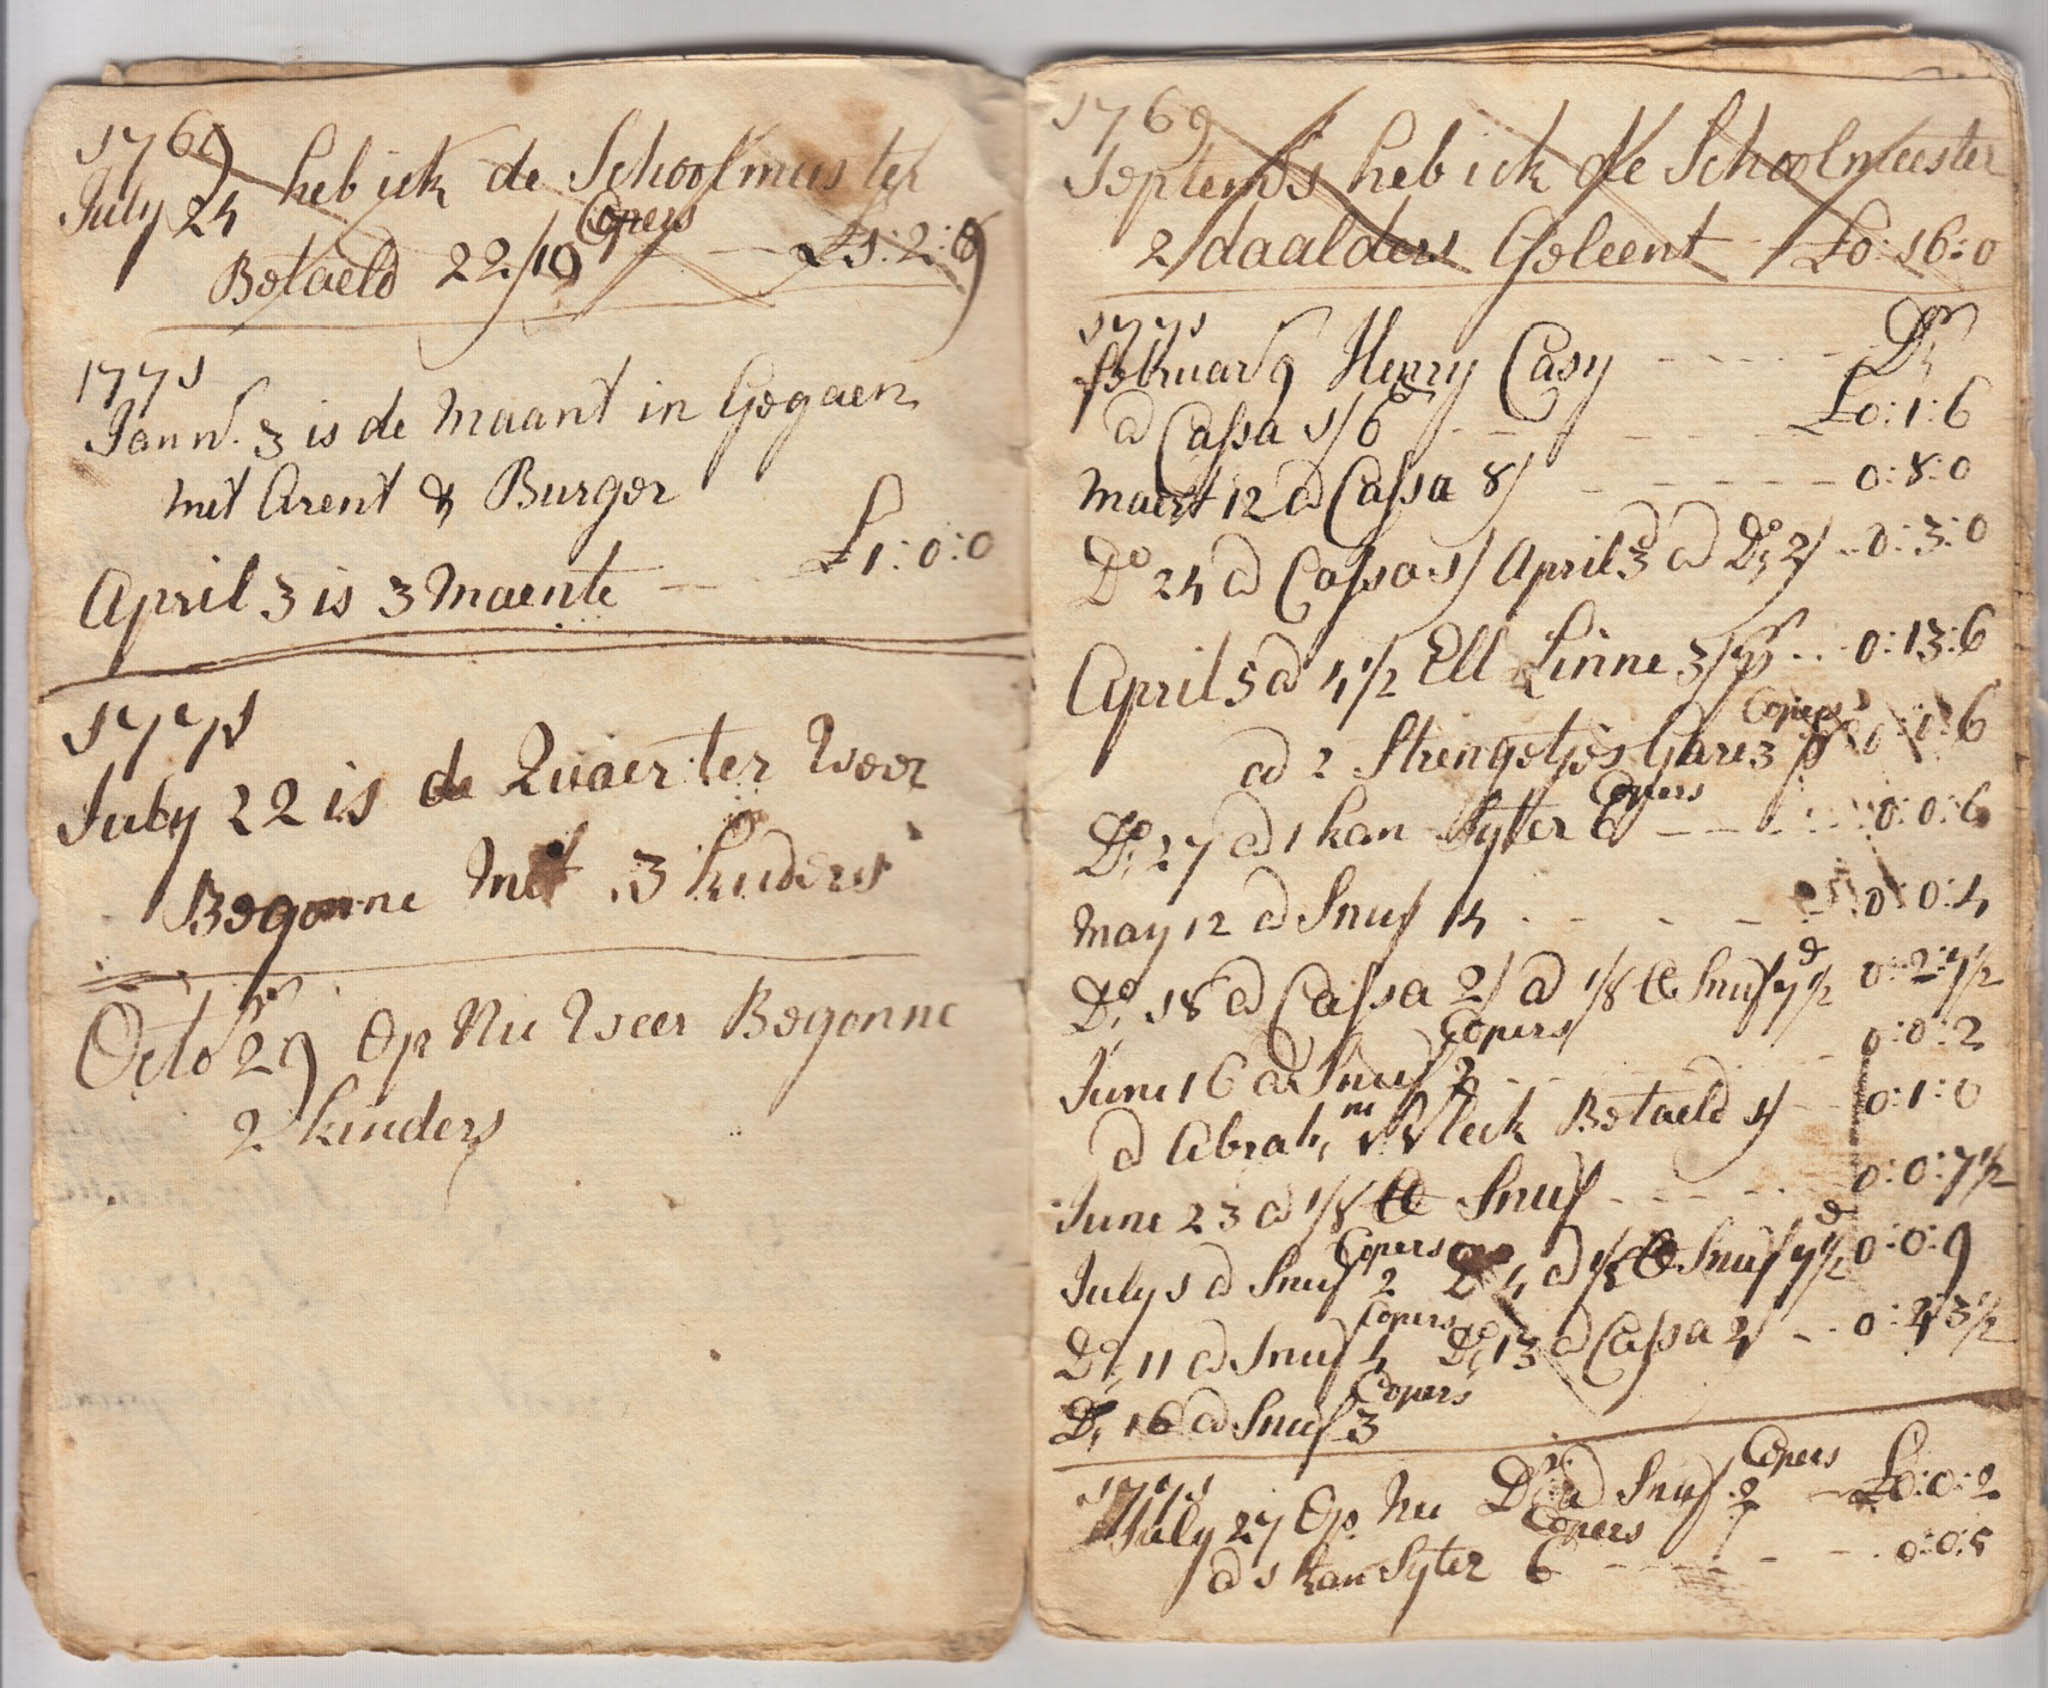 1769
July 24 heb ick de Schoolmeester
Copers
Betaeld 22/10 — £1:2:9
1771
Jann. 3 is de Maant in Gegaen
met Arent & Burger
April 3 is 3 Maente — £1:0:0
1771
July 22 is de Quaerter Weer
Begonne Met 3 kinders
Octobr 29 Op Nu Weer Begonne
2 kinders
1769
Septemb 5 heb ick de Schoolmeester
2 daalders Geleent £0:16:0
1771
February 9 Henry Casy Dr
a Cassa 1/6 £0:1:6
Maert 12 a Cassa 8/ 0:8:0
Do 24 a Cassa 1/ April 3 a Do 2/ 0:3:0
April 5 a 4 1/2 Ell Linne 3/ pr 0:13:6
Copers
a 2 Strengetjes Gare 3 p 0:1:6
Copers
Do 27 a 1 kan Syter 6 0:0:6
May 12 a Snuf 4 0:0:4
Do 18 a Cassa 2/ a 1/8 lb Snuf 7 1/2 d 0:2:7 1/2
Copers
June 16 a Snuf 2 0:0:2
a Abrahm V Vleck Betaeld 1/ 0:1:0
June 23 a 1/8 lb Snuf 0:0:7 1/2
Copers
July 1 a Snuf 2 Do 4 a 1/8 lb Snuf 7 1/2 d 0:0:9
Copers
Do 11 a Snuf 4 Do 13 a Cassa 0:3 1/2
Copers
Do 16 a Snuf 3
1771 Copers
July 27 Op Nu Dr a Snuf 2 — £0:0:2
Copers
a 1 kan Syter 6 0:0:5